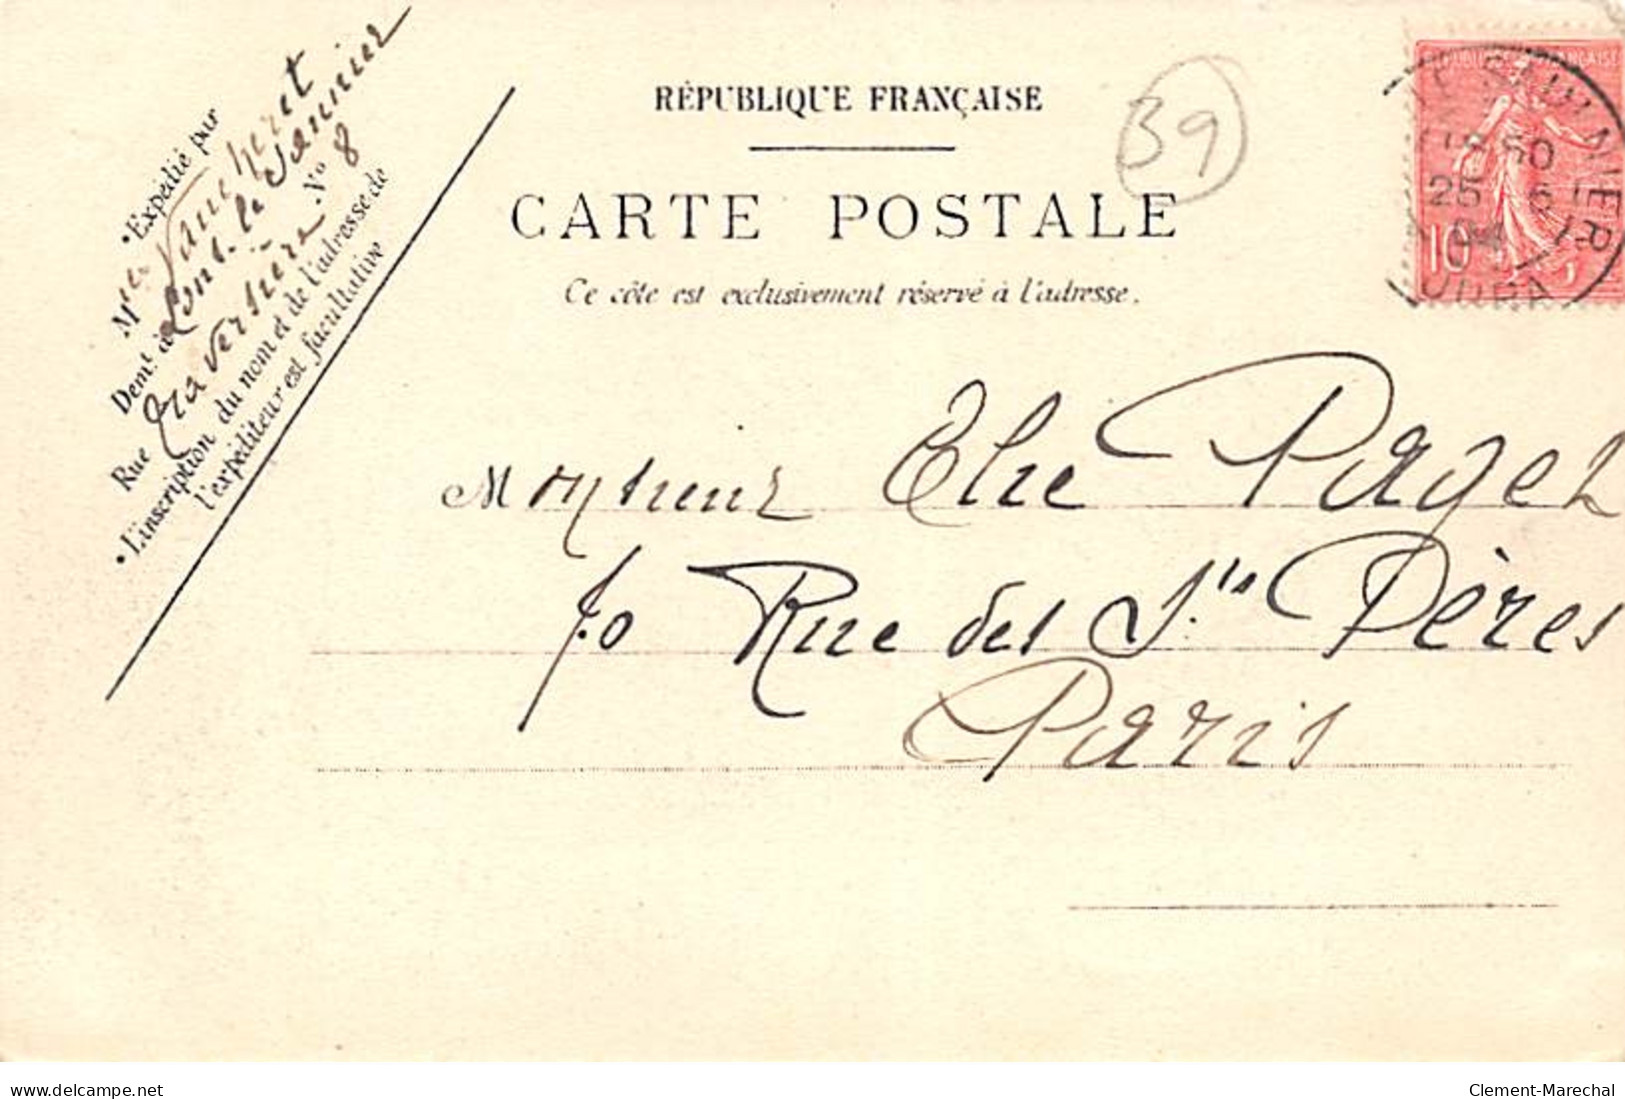 RÉPUBLIQUE FRANÇAISE
CARTE POSTALE
Ce côte est exclusivement réservé à l'adresse.
•Expédié par
M
Demt. à Lons-le-Saunier
Rue Traversière No 8
•L'inscription du nom et de l'adresse de
l'expéditeur est facultative
39
RÉPUBLIQUE FRANÇAISE
SAUNIER
25
10
JURA
Monsieur Elie Paget
70 Rue des Sts Pères
Paris
www.delcampe.net
Clement-Marechal